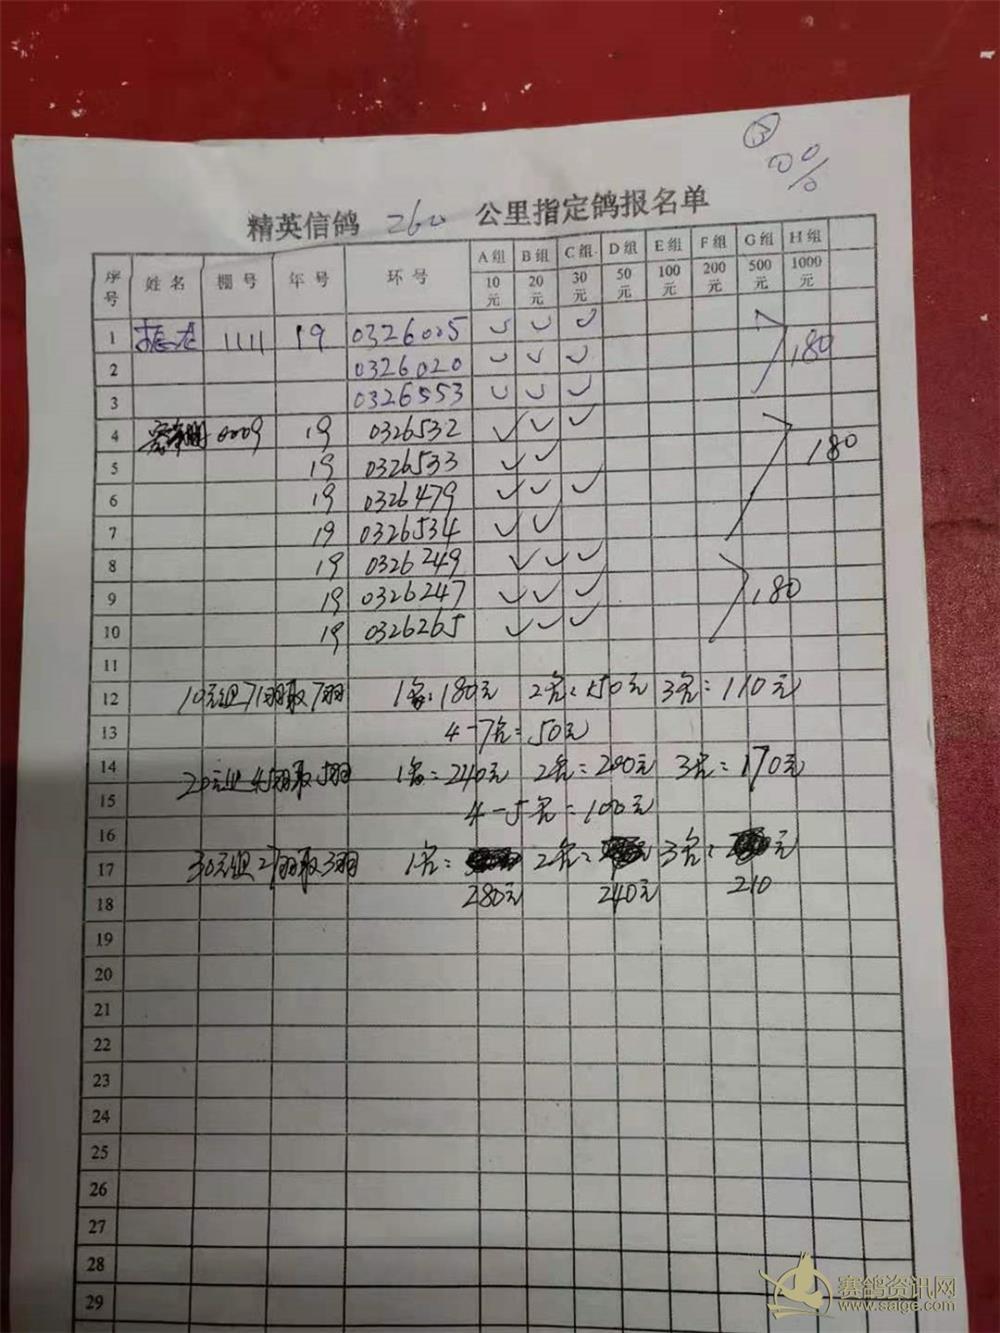 ③
精英信鸽 260 公里指定鸽报名单
序号 姓名 棚号 年号 环号 A组 10元 B组 20元 C组 30元 D组 50元 E组 100元 F组 200元 G组 500元 H组 1000元
1 1111 19 0326005 ✓ ✓ ✓
2 0326020 ✓ ✓ ✓ 180
3 0326553 ✓ ✓ ✓
4 0009 19 0326532 ✓ ✓ ✓
5 19 0326533 ✓ ✓ 180
6 19 0326479 ✓ ✓ ✓
7 19 0326534 ✓ ✓
8 19 0326249 ✓ ✓ ✓
9 19 0326247 ✓ ✓ ✓ 180
10 19 0326265 ✓ ✓ ✓
11
12 10元组71羽取7羽 1名:180元 2名:150元 3名:110元
13 4-7名:50元
14 20元组45羽取5羽 1名:240元 2名:200元 3名:170元
15 4-5名:100元
16
17 30元组27羽取3羽 1名: 2名: 元 3名: 元
18 280元 240元 210
19
20
21
22
23
24
25
26
27
28
29
赛鸽资讯网
www.saige.com